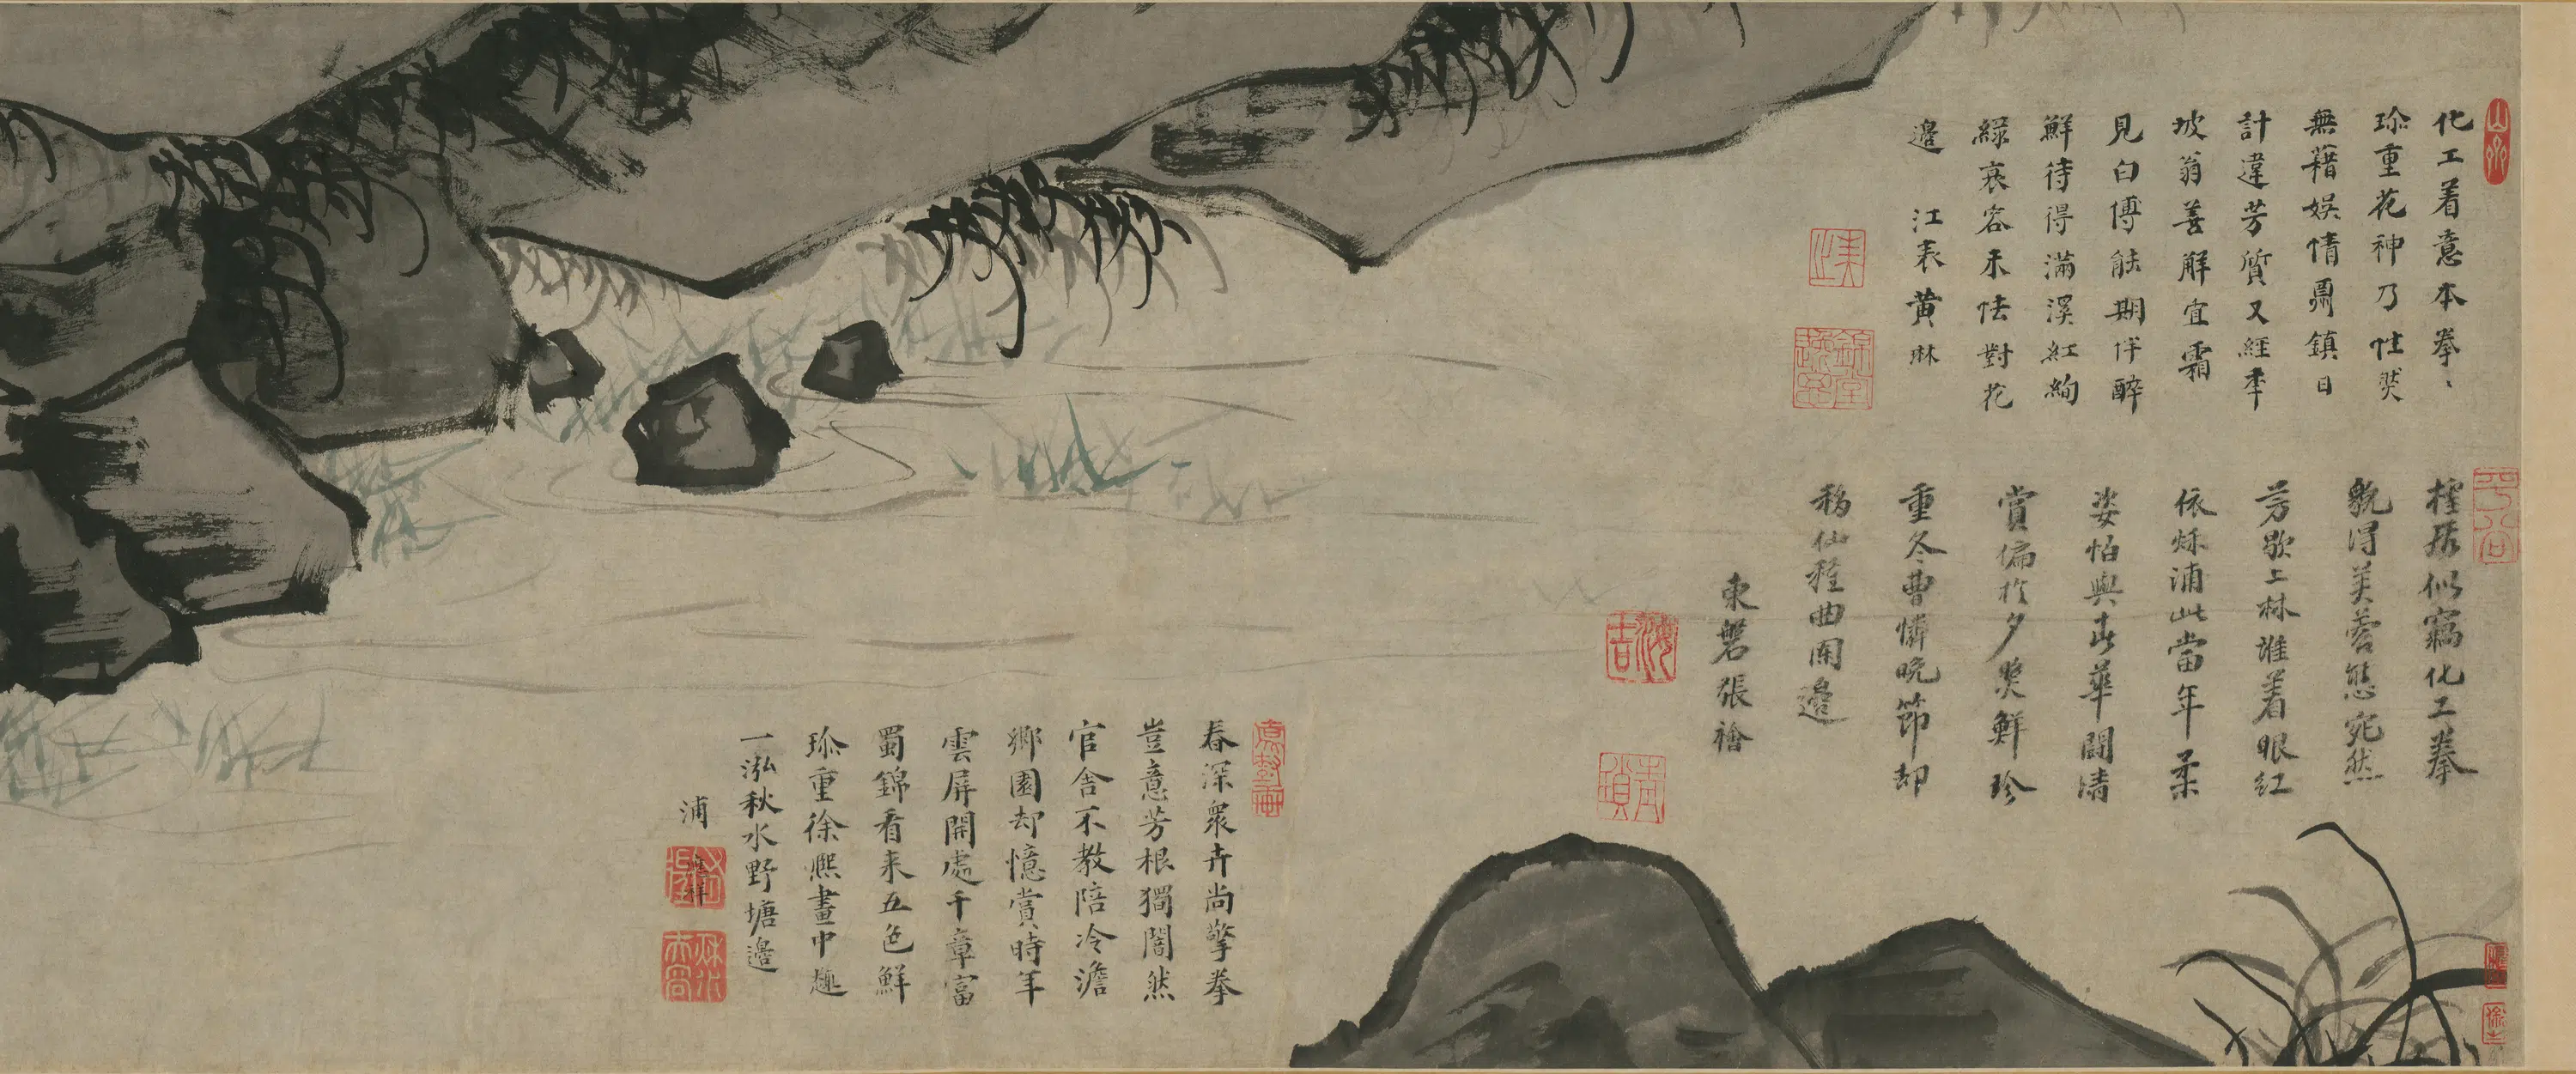 化工着意本拳〻
珎重花神乃性然
無藉娛情鼎鎮日
計違芳質又經季
坡翁善解宜霜
見白傅能期伴醉
鮮待得滿溪紅絢
綠衰容未怯對花
邉 江表黄琳
栓挶似竊化工拳
貌得芙蓉態宛然
芳歇上林誰着眼紅
依煣浦此當年柔
姿怕與春華鬪清
賞偏於夕𭰹鮮珍
重冬曹憐晚節却
移仙種曲闌邉
東磐張禬
春深衆卉尚擎拳
豈意芳根獨闇然
官舍不教陪冷澹
鄉園却憶賞時年
雲屏開處千章富
蜀錦看来五色鮮
珎重徐熙畫中趣
一泓秋水野塘邉
浦應祥